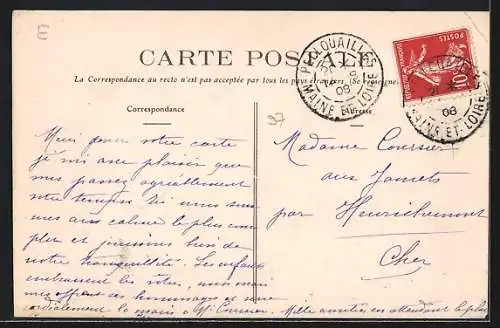 E
CARTE POSTALE
La Correspondance au recto n'est pas acceptée par tous les pays étrangers. (Se renseigner
Correspondance
Adresse
PELLOUAILLES
08
MAINE ET LOIRE
POSTES
10
08
MAINE ET LOIRE
37
Merci pour votre carte
je vois avec plaisir que
vous passez agréablement
votre temps. Ici nous
sommes au calme le plus com
plet et jouissons bien de
notre tranquillité. Les enfants
embrassent les vôtres, mon mari
vous offrent ses hommages et
cordialement la main à Mr Coursier. Mille amitiés en attendant le plaisir
Madame Coursier
aux Jamets
par Henrichemont
Cher